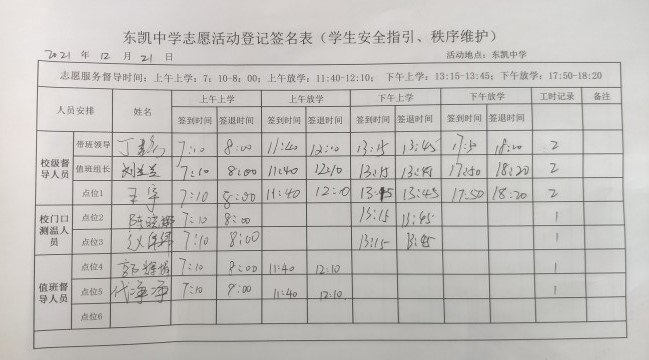 东凯中学志愿活动登记签名表（学生安全指引、秩序维护）
2021 年 12 月 21 日 活动地点：东凯中学
志愿服务督导时间：上午上学：7：10-8：00；上午放学：11:40-12:10； 下午上学：13:15-13:45；下午放学：17:50-18:20
人员安排 姓名 上午上学 上午放学 下午上学 下午放学 工时记录 备注
签到时间 签退时间 签到时间 签退时间 签到时间 签退时间 签到时间 签退时间
校级督导人员 带班领导 7:10 8:00 11:40 12:10 13:15 13:45 17:50 18:20 2
值班组长 7:10 8:00 11:40 12:10 13:15 13:45 17:50 18:20 2
点位1 王宇 7:10 8:00 11:40 12:10 13:15 13:45 17:50 18:20 2
校门口测温人员 点位2 7:10 8:00 13:15 13:45 1
点位3 7:10 8:00 13:15 13:45 1
值班督导人员 点位4 7:10 8:00 11:40 12:10 1
点位5 7:10 8:00 11:40 12:10 1
点位6